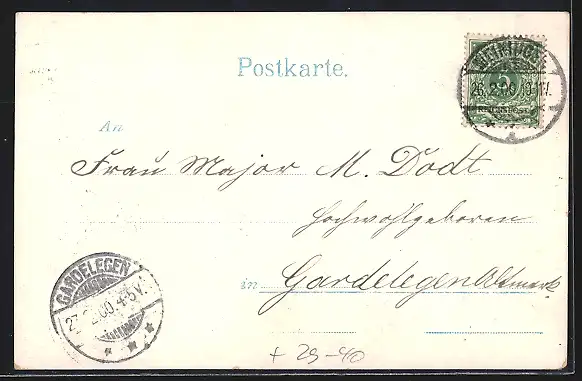 Postkarte.
26.2.00.
5
REICHSPOST
An
Frau Major M. Dodt
Hochwohlgeboren
in Gardelegen Altmark
GARDELEGEN
27. 2.00. 4-5V.
+ 29-40